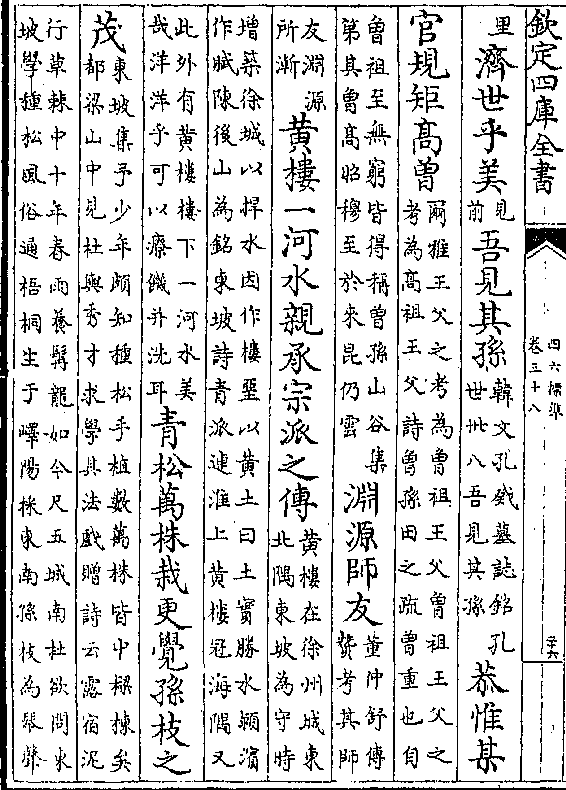 欽定四庫全書
四六標準
卷三十八
里濟世乎美見前吾見其孫韓文孔戣墓誌銘孔世卅八吾見其孫恭惟某
官規矩高曾爾雅王父之考為曾祖王父曾祖王父之考為高祖王父詩曾孫田之疏曾重也自
曾祖至無窮皆得稱曾孫山谷集第其曾高昭穆至於來昆仍雲淵源師友董仲舒傳贊考其師
友淵源所漸黄樓一河水親承宗派之傳黄樓在徐州城東北隅東坡為守時
增築徐城以捍水因作樓堊以黄土曰土實勝水潁濱作賦陳後山為銘東坡詩青派連淮上黄樓冠海隅又
此外有黄樓樓下一河水美哉洋洋乎可以療饑并洗耳青松萬株栽更覺孫枝之
茂東坡集予少年頗知種松手植數萬株皆中樑棟矣都梁山中見杜輿秀才求學其法戲贈詩云露宿泥
行草棘中十年春雨養髯龍如今尺五城南杜欲問東坡學種松風俗通梧桐生于嶧陽採東南孫枝為琴聲